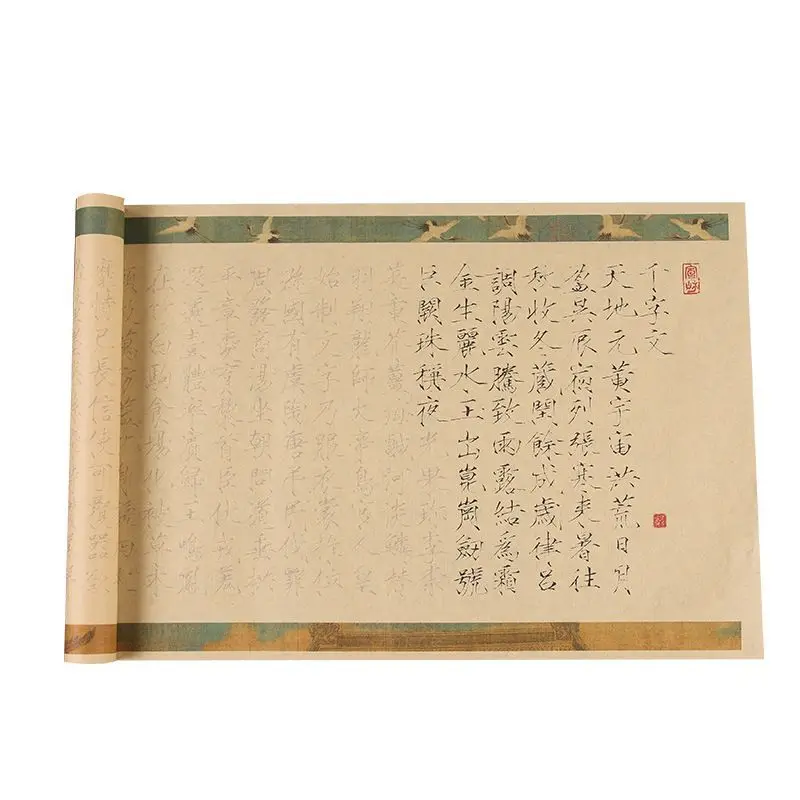 千字文
天地元黄宇宙洪荒日月
盈昃辰宿列張寒来暑往
秋收冬藏閏餘成歲律吕
調陽雲騰致雨露結爲霜
金生麗水玉出崑崗劍號
巨闕珠稱夜光果珍李柰
菜重芥薑海鹹河淡鱗潜
羽翔龍師火帝鳥官人皇
始制文字乃服衣裳推位
遜國有虞陶唐弔民伐罪
周發商湯坐朝問道垂拱
平章愛育黎首臣伏戎羌
遐邇壹體率賓歸王鳴鳳
在竹白駒食場化被草木
賴及萬方蓋此身髮四大
靡恃己長信使可覆器欲